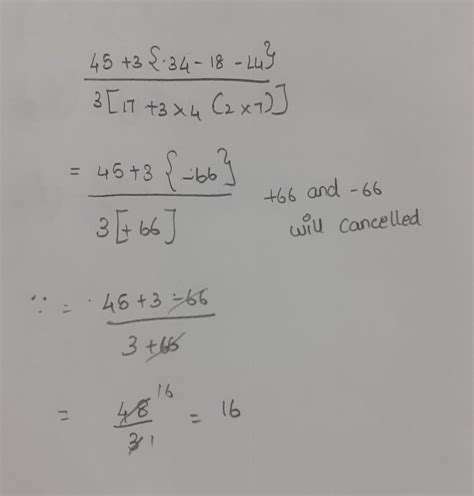 45 + 3 { · 34 - 18 - 44 }
3 [ 17 + 3 × 4 ( 2 × 7 ) ]
= 45 + 3 { - 66 }
3 [ + 66 ]
+66 and - 66
will cancelled
∵ = 45 + 3 - 66
3 + 66
= 48 16
3 1
= 16